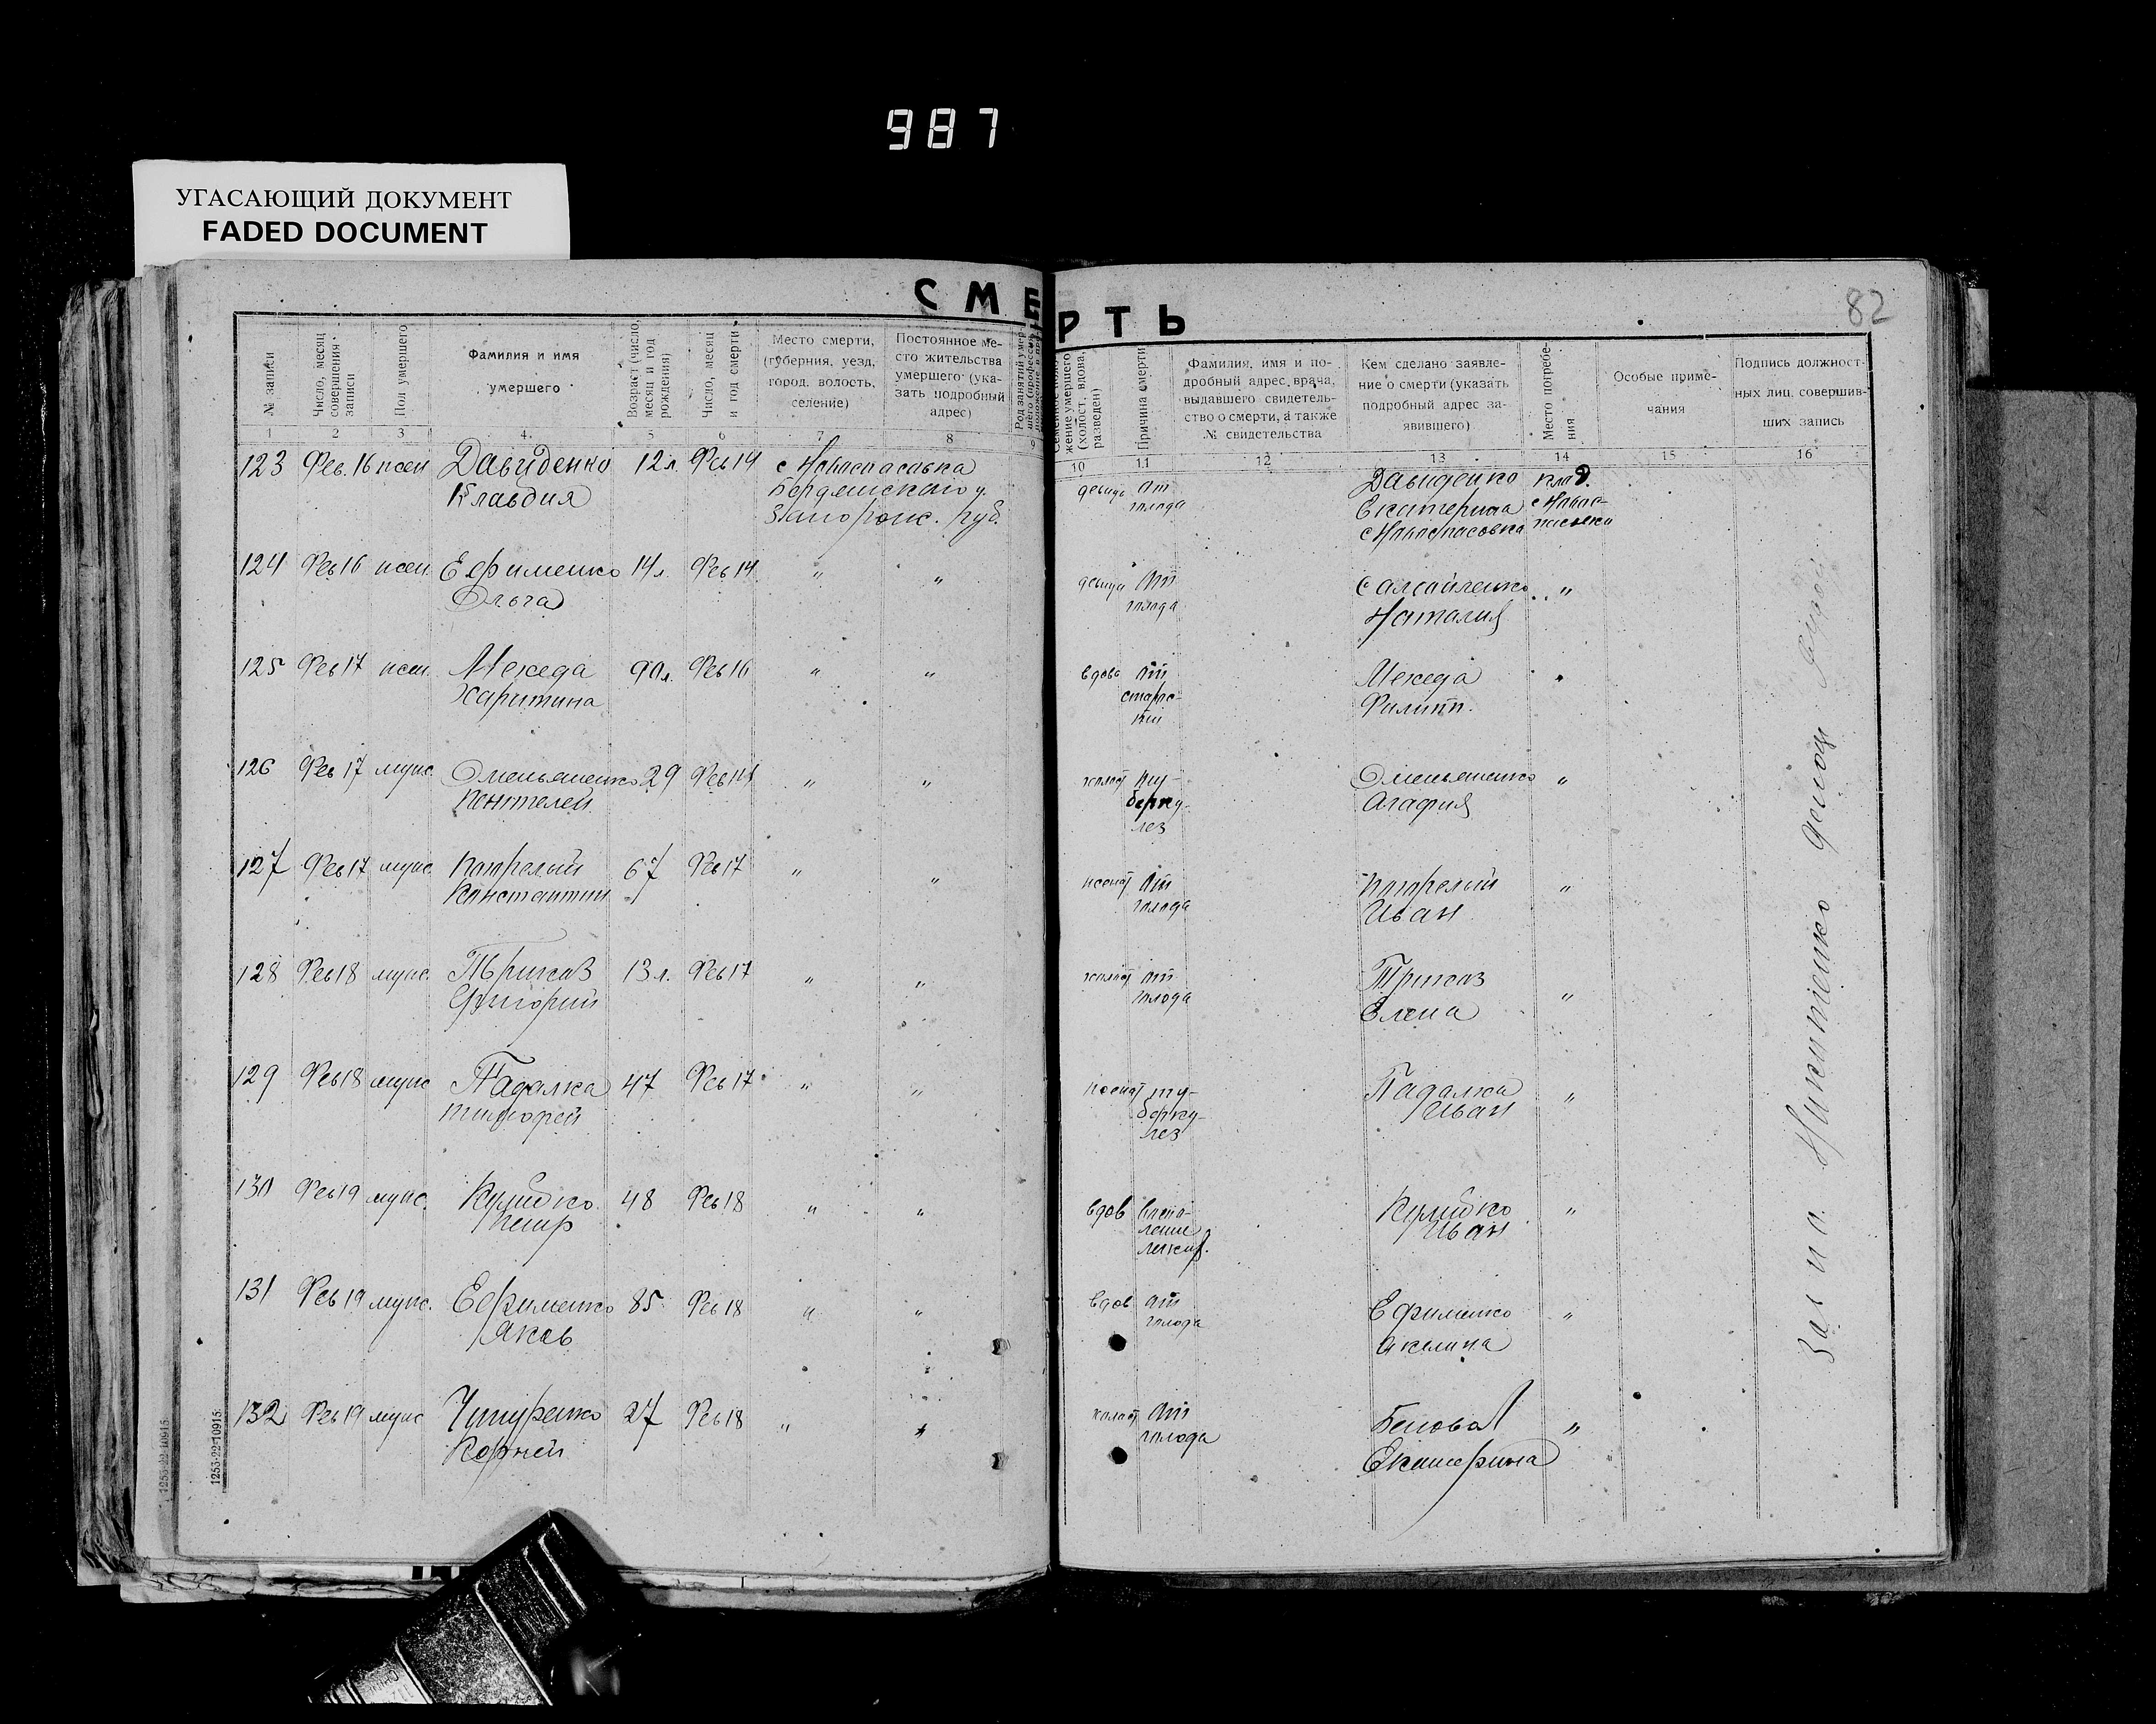 987
УГАСАЮЩИЙ ДОКУМЕНТ
FADED DOCUMENT
СМЕРТЬ
82
№ записи
Число, месяц совершения записи
Пол умершего
Фамилия и имя умершего
Возраст (число, месяц и год рождения)
Число, месяц и год смерти
Место смерти, (губерния, уезд, город, волость, селение)
Постоянное место жительства умершего (указать подробный адрес)
жение умершего (холост, вдова, разведен)
Причина смерти
Фамилия, имя и подробный адрес врача, выдавшего свидетельство о смерти, а также № свидетельства
Кем сделано заявление о смерти (указать подробный адрес заявившего)
Место погребения
Особые примечания
Подпись должностных лиц, совершивших запись
1 2 3 4 5 6 7 8 9 10 11 12 13 14 15 16
123 Фев. 16 жен Давиденко 12 л. Фев 14 с Новоспасовка девица от Давиденко клад.
Клавдия Бердянского у. голода Екатерина с Новос-
Запорож. губ. с Новоспасовка пасовки
124 Фев 16 жен Ефименко 14 л. Фев 14 " " девица от "
Ольга голода Наталия
125 Фев 17 жен. Мекеда 90 л. Фев 16 " " вдова от Мекеда
Харитина старо- Филипп.
сти
126 Фев 17 муж. Омельяненко 29 Фев 14 " " холост ту- Омельяненко "
Пантелей берку- Агафия
лез
127 Фев 17 муж. 67 Фев 17 " " женат от "
Константин голода Иван
128 Фев 18 муж. Тригоз 13 л. Фев 17 " " холост от Тригоз "
Григорий голода Елена
129 Фев 18 муж Падалка 47 Фев 17 " " женат ту- Падалка "
Тимофей берку- Иван
лез
130 Фев 19 муж. 48 Фев 18 " " вдов воспа- "
Петр ление Иван
легких.
131 Фев 19 муж. Ефименко 85 Фев 18 " " вдов от Ефименко "
Яков голода Акилина
132 Фев 19 муж 27 Фев 18 " " холост от Белова "
Корней голода Екатерина
Зав. п.о. Никитенко
1253-22-10915
1253-22-10915